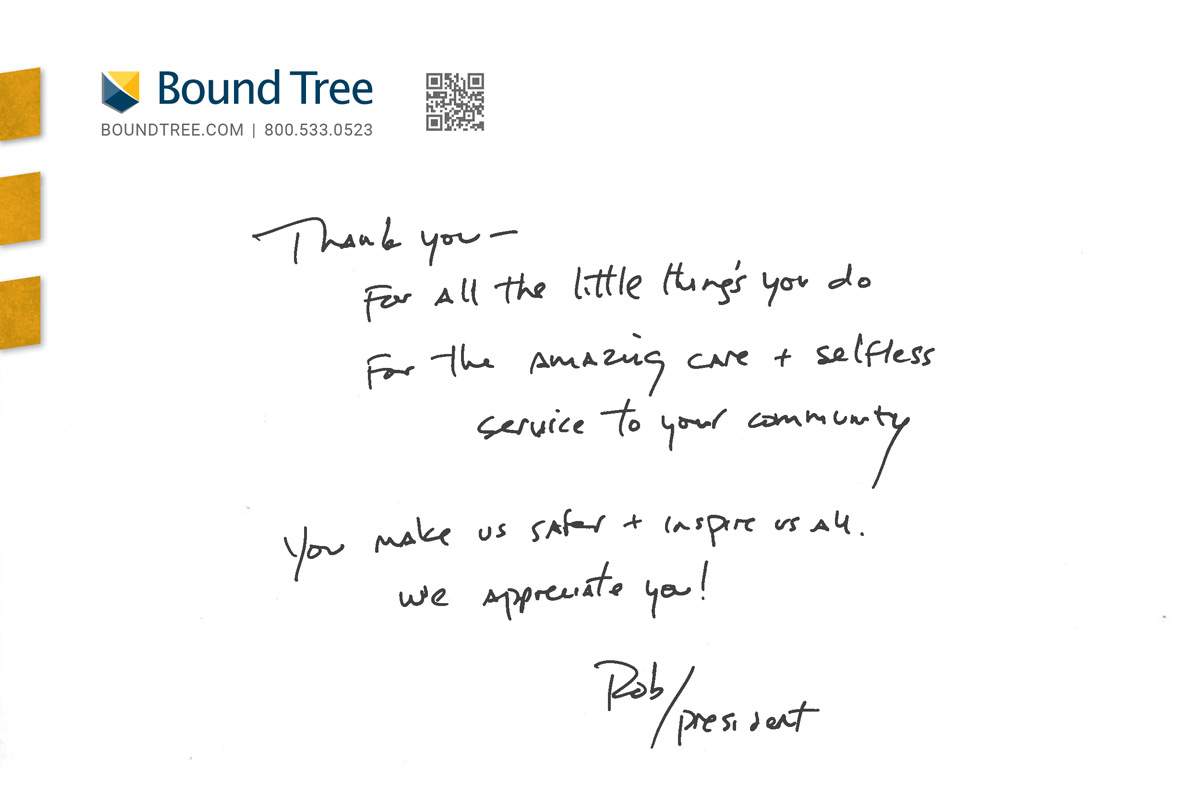 Bound Tree
BOUNDTREE.COM | 800.533.0523
Thank you —
For all the little thing's you do
For the amazing care + selfless
service to your community
You make us safer + inspire us all.
We appreciate you!
Rob/president